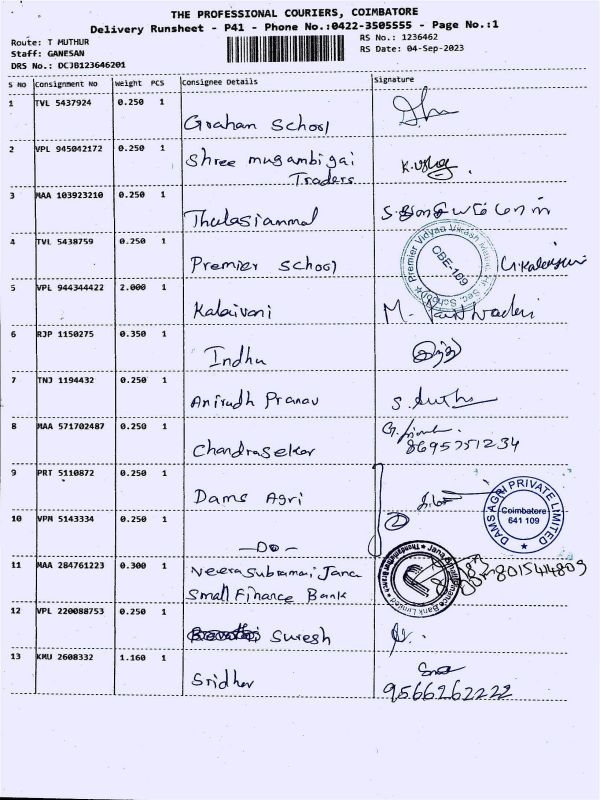 THE PROFESSIONAL COURIERS, COIMBATORE
Delivery Runsheet - P41 - Phone No.:0422-3505555 - Page No.:1
Route: T MUTHUR
Staff: GANESAN
DRS No.: DCJB123646201
RS No.: 1236462
RS Date: 04-Sep-2023
S No Consignment No Weight PCS Consignee Details Signature
1 TVL 5437924 0.250 1 Graham School
2 VPL 945042172 0.250 1 Shree mugambigai
Traders
3 MAA 103923210 0.250 1 Thulasiammal
4 TVL 5438759 0.250 1 Premier School
Premier Vidyaa Vikash Matric. Hr. Sec. School
CBE-109
5 VPL 944344422 2.000 1 Kalaivani M.
6 RJP 1150275 0.350 1 Indhu இந்து
7 TNJ 1194432 0.250 1 Anirudh Pranav S.
8 MAA 571702487 0.250 1 Chandrasekar G.
8695751234
9 PRT 5110872 0.250 1 Dams Agri
DAMSAGRI PRIVATE LIMITED
Coimbatore
641 109
10 VPM 5143334 0.250 1 —DO—
11 MAA 284761223 0.300 1 Neerasubramai, Jana
Small Finance Bank
Jana Small Finance Bank Limited
8015414809
12 VPL 220088753 0.250 1 Suresh
13 KMU 2608332 1.160 1 Sridhar
9566262222